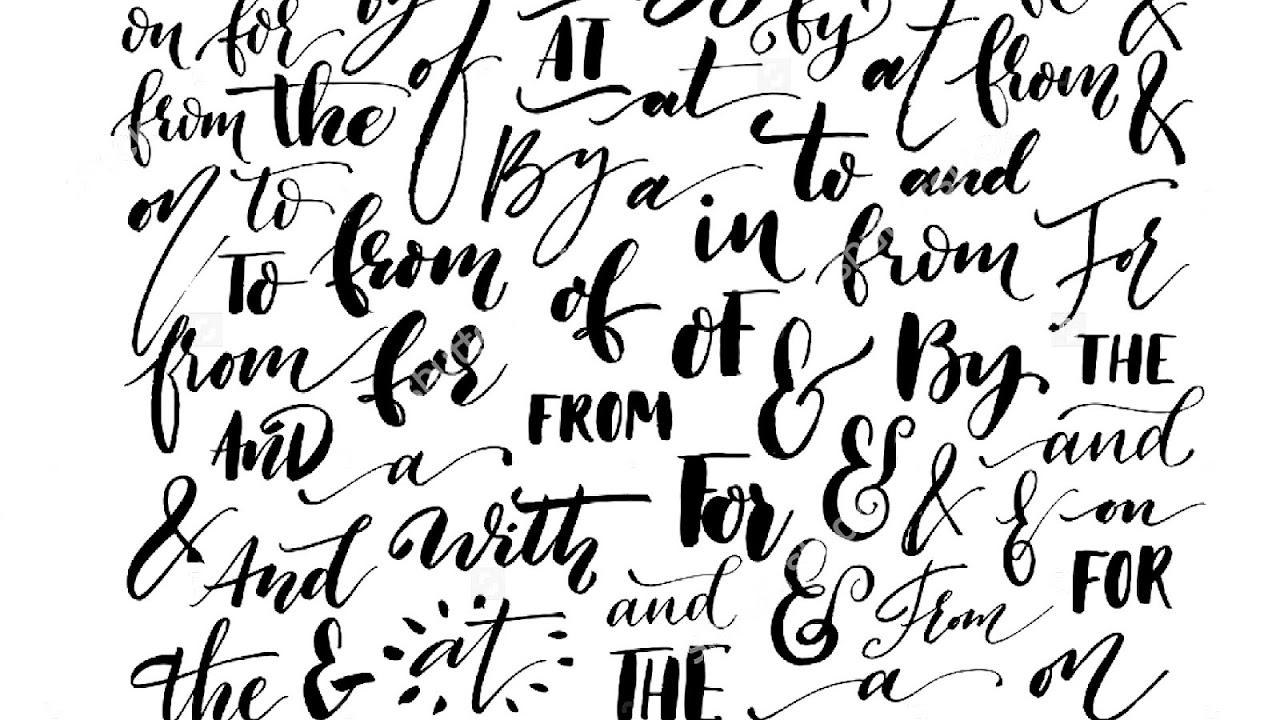 on for by of AT by &
from the at at from &
on to By a to and
To from of in from For
from for of & By THE
AND a FROM & and
& And with For & & & on
the & at and & From FOR
THE a on